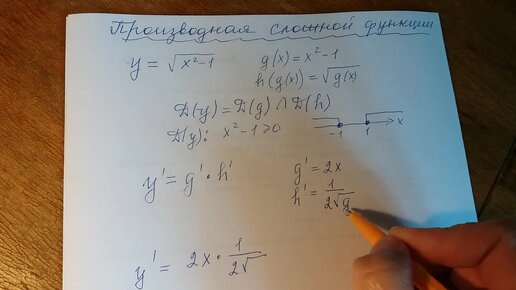 Производная сложной функции
y = √x²-1
g(x) = x² - 1
h(g(x)) = √g(x)
D(y) = D(g) ∧ D(h)
D(y): x² - 1 ≥ 0
-1 1 x
y' = g' · h'
g' = 2x
h' = 1/2√g
y' = 2x · 1/2√